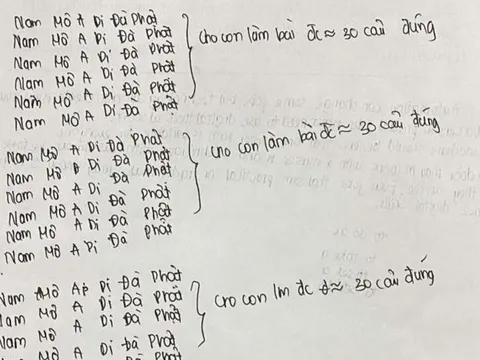 Nam Mô A Di Đà Phật
Nam Mô A Di Đà Phật
Nam Mô A Di Đà Phật
Nam Mô A Di Đà Phật
Nam Mô A Di Đà Phật
Nam Mô A Di Đà Phật
cho con làm bài đc ≈ 30 câu đúng
Nam Mô A Di Đà Phật
Nam Mô A Di Đà Phật
Nam Mô A Di Đà Phật
Nam Mô A Di Đà Phật
Nam Mô A Di Đà Phật
Nam Mô A Di Đà Phật
cho con làm bài đc ≈ 30 câu đúng
Nam Mô A Di Đà Phật
Nam Mô A Di Đà Phật
Nam Mô A Di Đà Phật
Nam Mô A Di Đà Phật
cho con lm đc ≈ 30 câu đúng